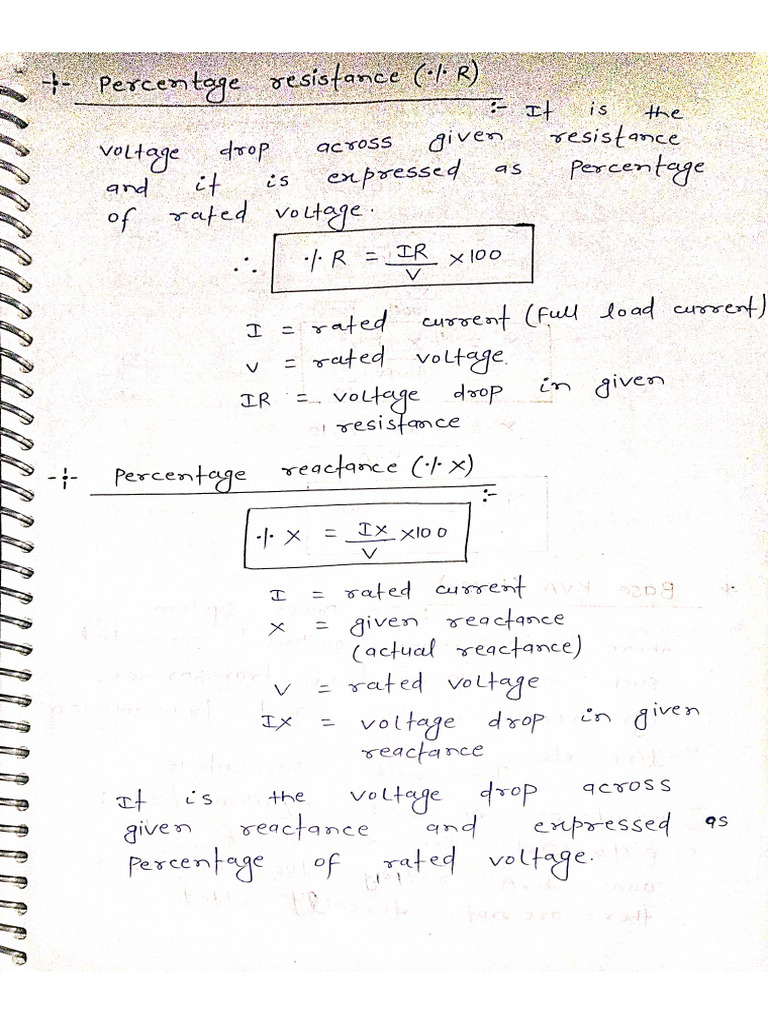 -:- Percentage resistance (% R)
:- It is the
voltage drop across given resistance
and it is expressed as percentage
of rated voltage.
∴ % R = IR/V × 100
I = rated current (full load current)
V = rated voltage.
IR = voltage drop in given
resistance
-:- Percentage reactance (% X)
:-
% X = IX/V × 100
I = rated current
X = given reactance
(actual reactance)
V = rated voltage
IX = voltage drop in given
reactance
It is the voltage drop across
given reactance and expressed as
percentage of rated voltage.